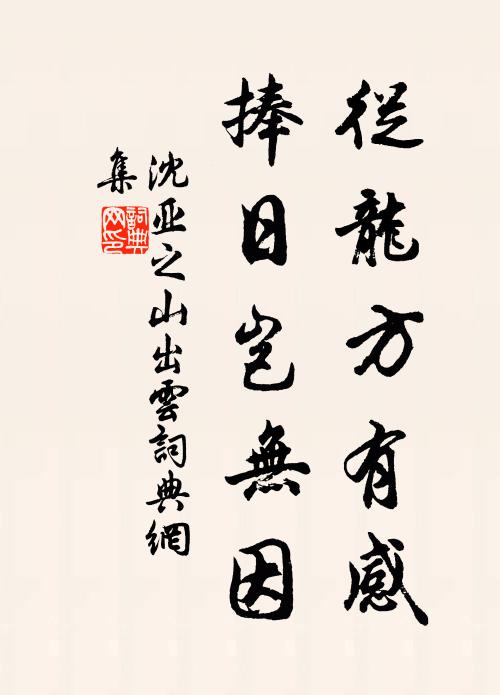 從龍方有感
捧日岂無因
沈亚之山出雲詞典網
集
詞典
网印